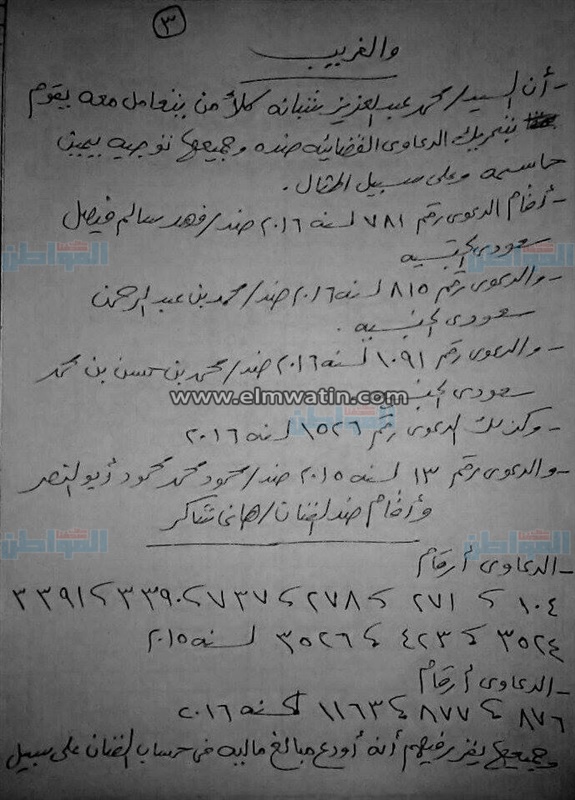 ٣
والغريب
- أن السيد/ محمد عبد العزيز شبانه كلاً من يتعامل معه يقوم
بتحريك الدعاوى القضائيه ضده وجميعها توجيه يمين
حاسمه وعلى سبيل المثال.
- أقام الدعوى رقم ٧٨١ لسنه ٢٠١٦ ضد/ فهد سالم فيصل
سعودى الجنسيه
- والدعوى رقم ٨١٥ لسنه ٢٠١٦ ضد/ محمد بن عبد الرحمن
سعودى الجنسيه.
- والدعوى رقم ١٠٩١ لسنه ٢٠١٦ ضد/ محمد بن حسن بن محمد
سعودى الجنسيه
www.elmwatin.com
- وكذلك الدعوى رقم ١٥٢٦ لسنه ٢٠١٦
- والدعوى رقم ١٣ لسنه ٢٠١٥ ضد/ محمود محمد محمود أبو النصر
وأقام ضد الفنان/ هانى شاكر
- الدعاوى أرقام
١٠٤ ، ٢٧١ ، ٢٧٨ ، ٧٣٧ ، ٣٣٩٠ ، ٣٣٩١
٣٥٢٤ ، ٤٢٣ ، ٣٥٢٦ لسنه ٢٠١٥
- الدعاوى أرقام
٨٧٦ ، ٨٧٧ ، ١١٦٣ لسنه ٢٠١٦
وجميعها يقر فيهم أنه أودع مبالغ ماليه فى حساب الفنان على سبيل
المواطن
المواطن
المواطن
المواطن
المواطن